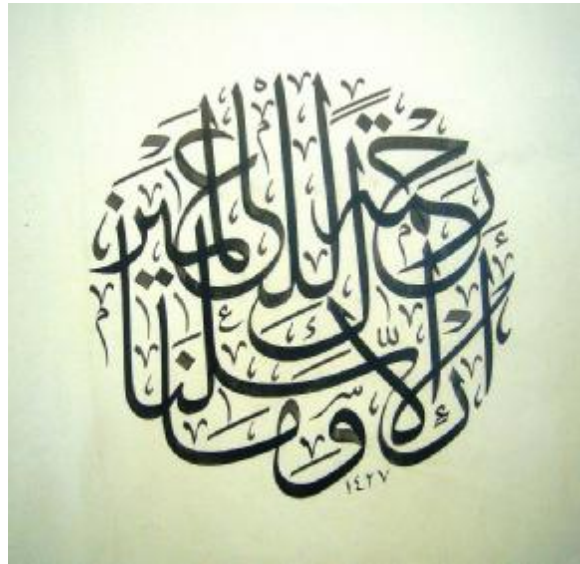 وَمَا أَرْسَلْنَاكَ إِلَّا رَحْمَةً لِلْعَالَمِينَ
١٤٢٧